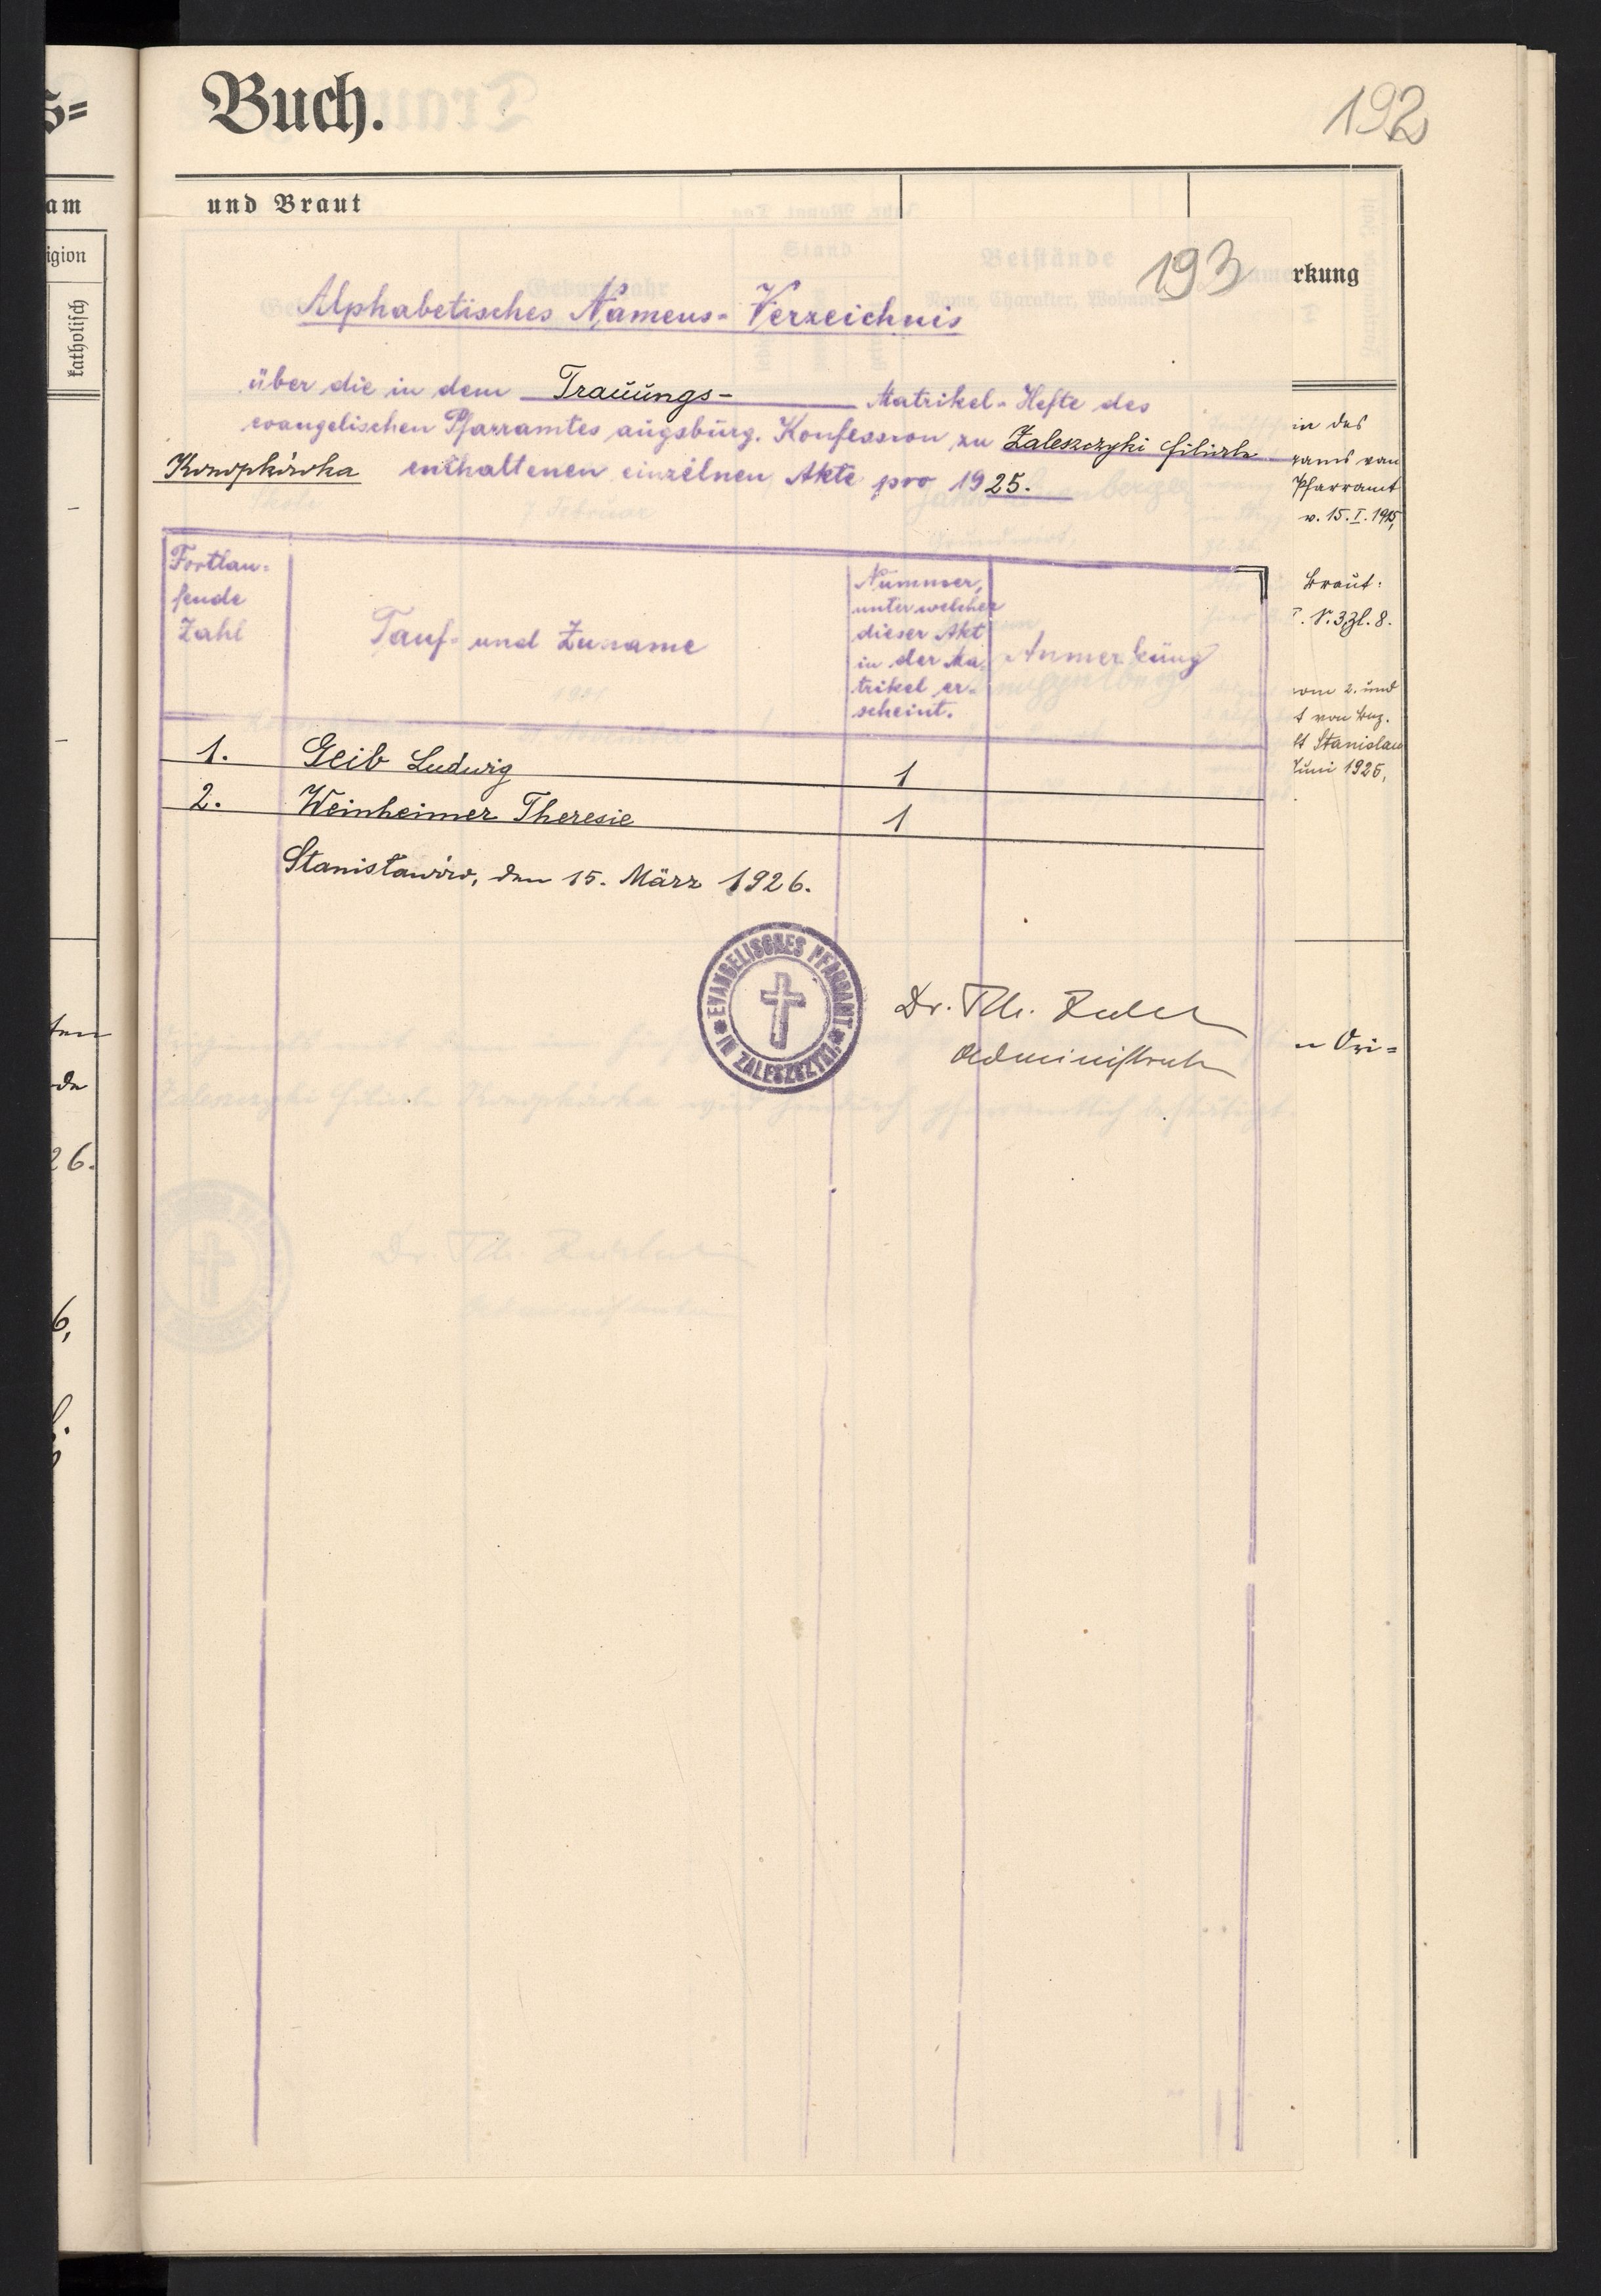 Buch.
192
und Braut
am
igion
katholisch
193
rkung
Alphabetisches Namens-Verzeichnis
über die in dem Trauungs- Matrikel-Hefte des
evangelischen Pfarramtes augsburg. Konfession zu Zaleszczyki Filiale
Konopkówka enthaltenen einzelnen Akte pro 1925.
in des
Pfarramt
v. 15. I. 1925,
Braut:
vom 2. und
t von
Stanislau
Juni 1925,
Fortlau-
fende
Zahl
Tauf- und Zuname
Nummer,
unter welcher
dieser Akt
in der Ma-
trikel er-
scheint.
Anmerkung
1. Geib Ludwig 1
2. Weinheimer Theresie 1
Stanisławów, den 15. März 1926.
EVANGELISCHES PFARRAMT
IN ZALESZCZYKI
Dr. Th.
Administrator
Ori=
26.